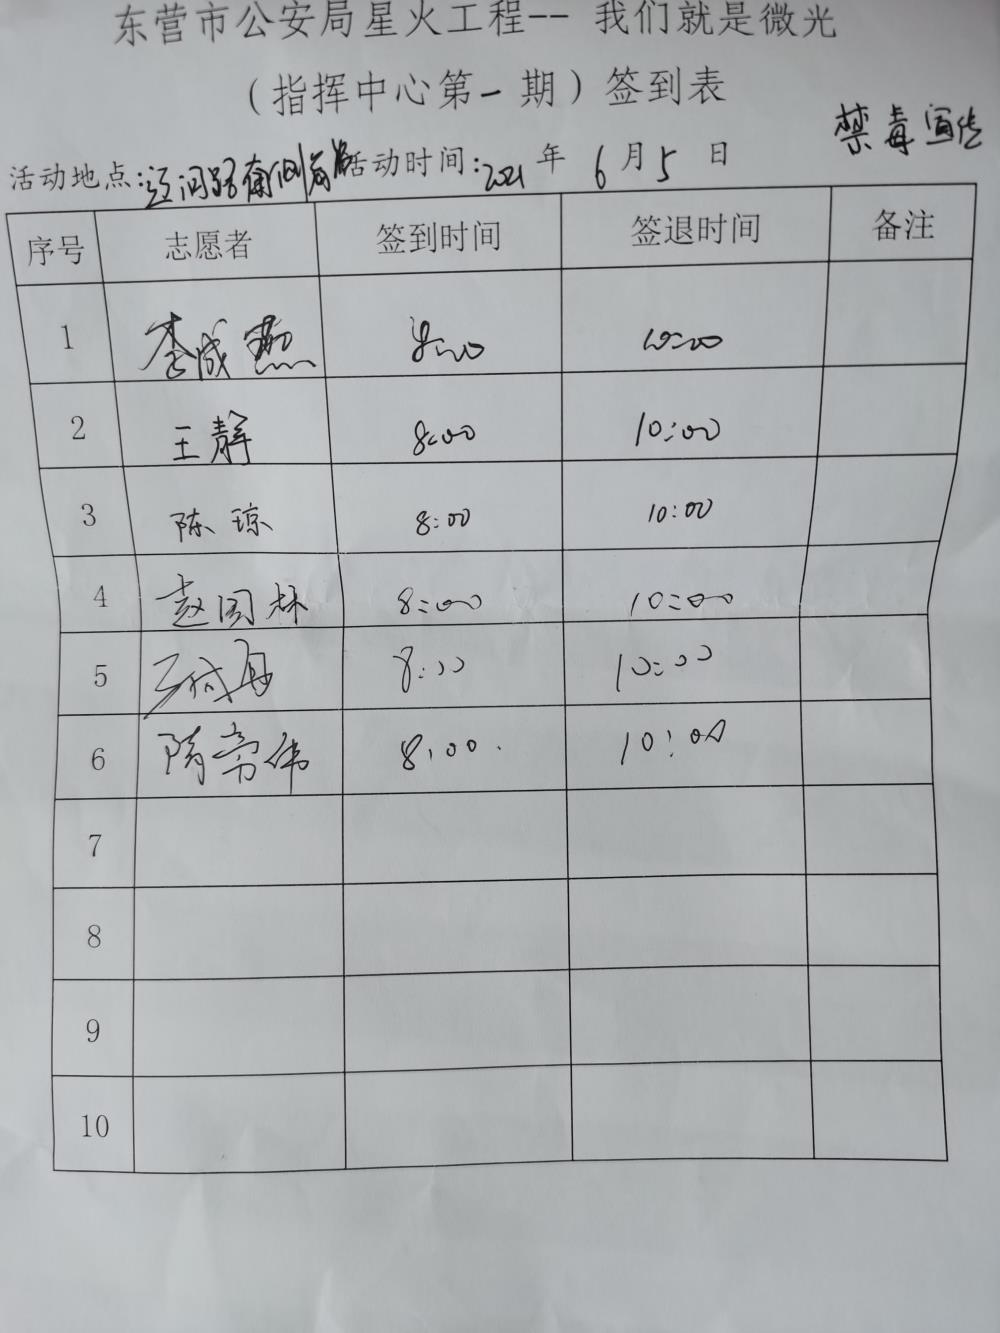 东营市公安局星火工程-- 我们就是微光
（指挥中心第一期）签到表
禁毒宣传
活动地点: 活动时间:2021 年 6 月 5 日
序号 志愿者 签到时间 签退时间 备注
1 李成燕 8:00 10:00
2 王静 8:00 10:00
3 陈琼 8:00 10:00
4 赵国林 8:00 10:00
5 8:00 10:00
6 隋 伟 8:00 10:00
7
8
9
10